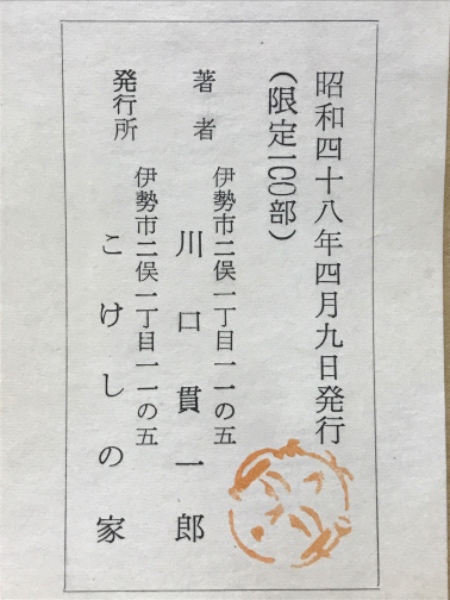 昭和四十八年四月九日発行
(限定一〇〇部)
伊勢市二俣一丁目一一の五
著者 川口貫一郎
伊勢市二俣一丁目一一の五
発行所 こけしの家